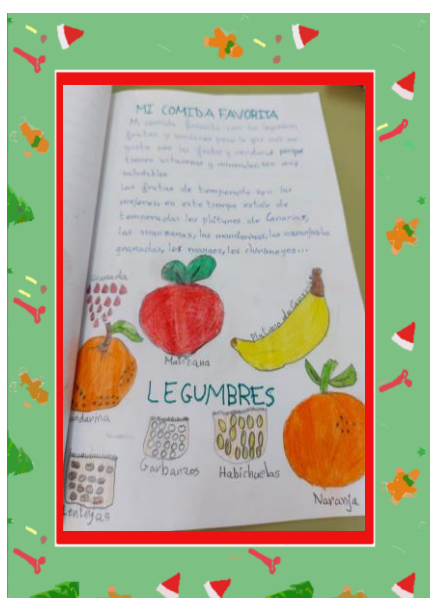 MI COMIDA FAVORITA
Mi comida favorita son las
frutas y verduras pero lo que más me
gusta son las frutas y verduras porque
tienen vitaminas y minerales, son muy
saludables.
Las frutas de temporada son las
mejores, en este tiempo están de
temporada: los plátanos de Canarias,
las manzanas, las mandarinas, las naranjas, las
granadas, los mangos, las chirimoyas...
Granada
Manzana
Plátano de Canarias
Mandarina
LEGUMBRES
Garbanzos
Habichuelas
Lentejas
Naranja